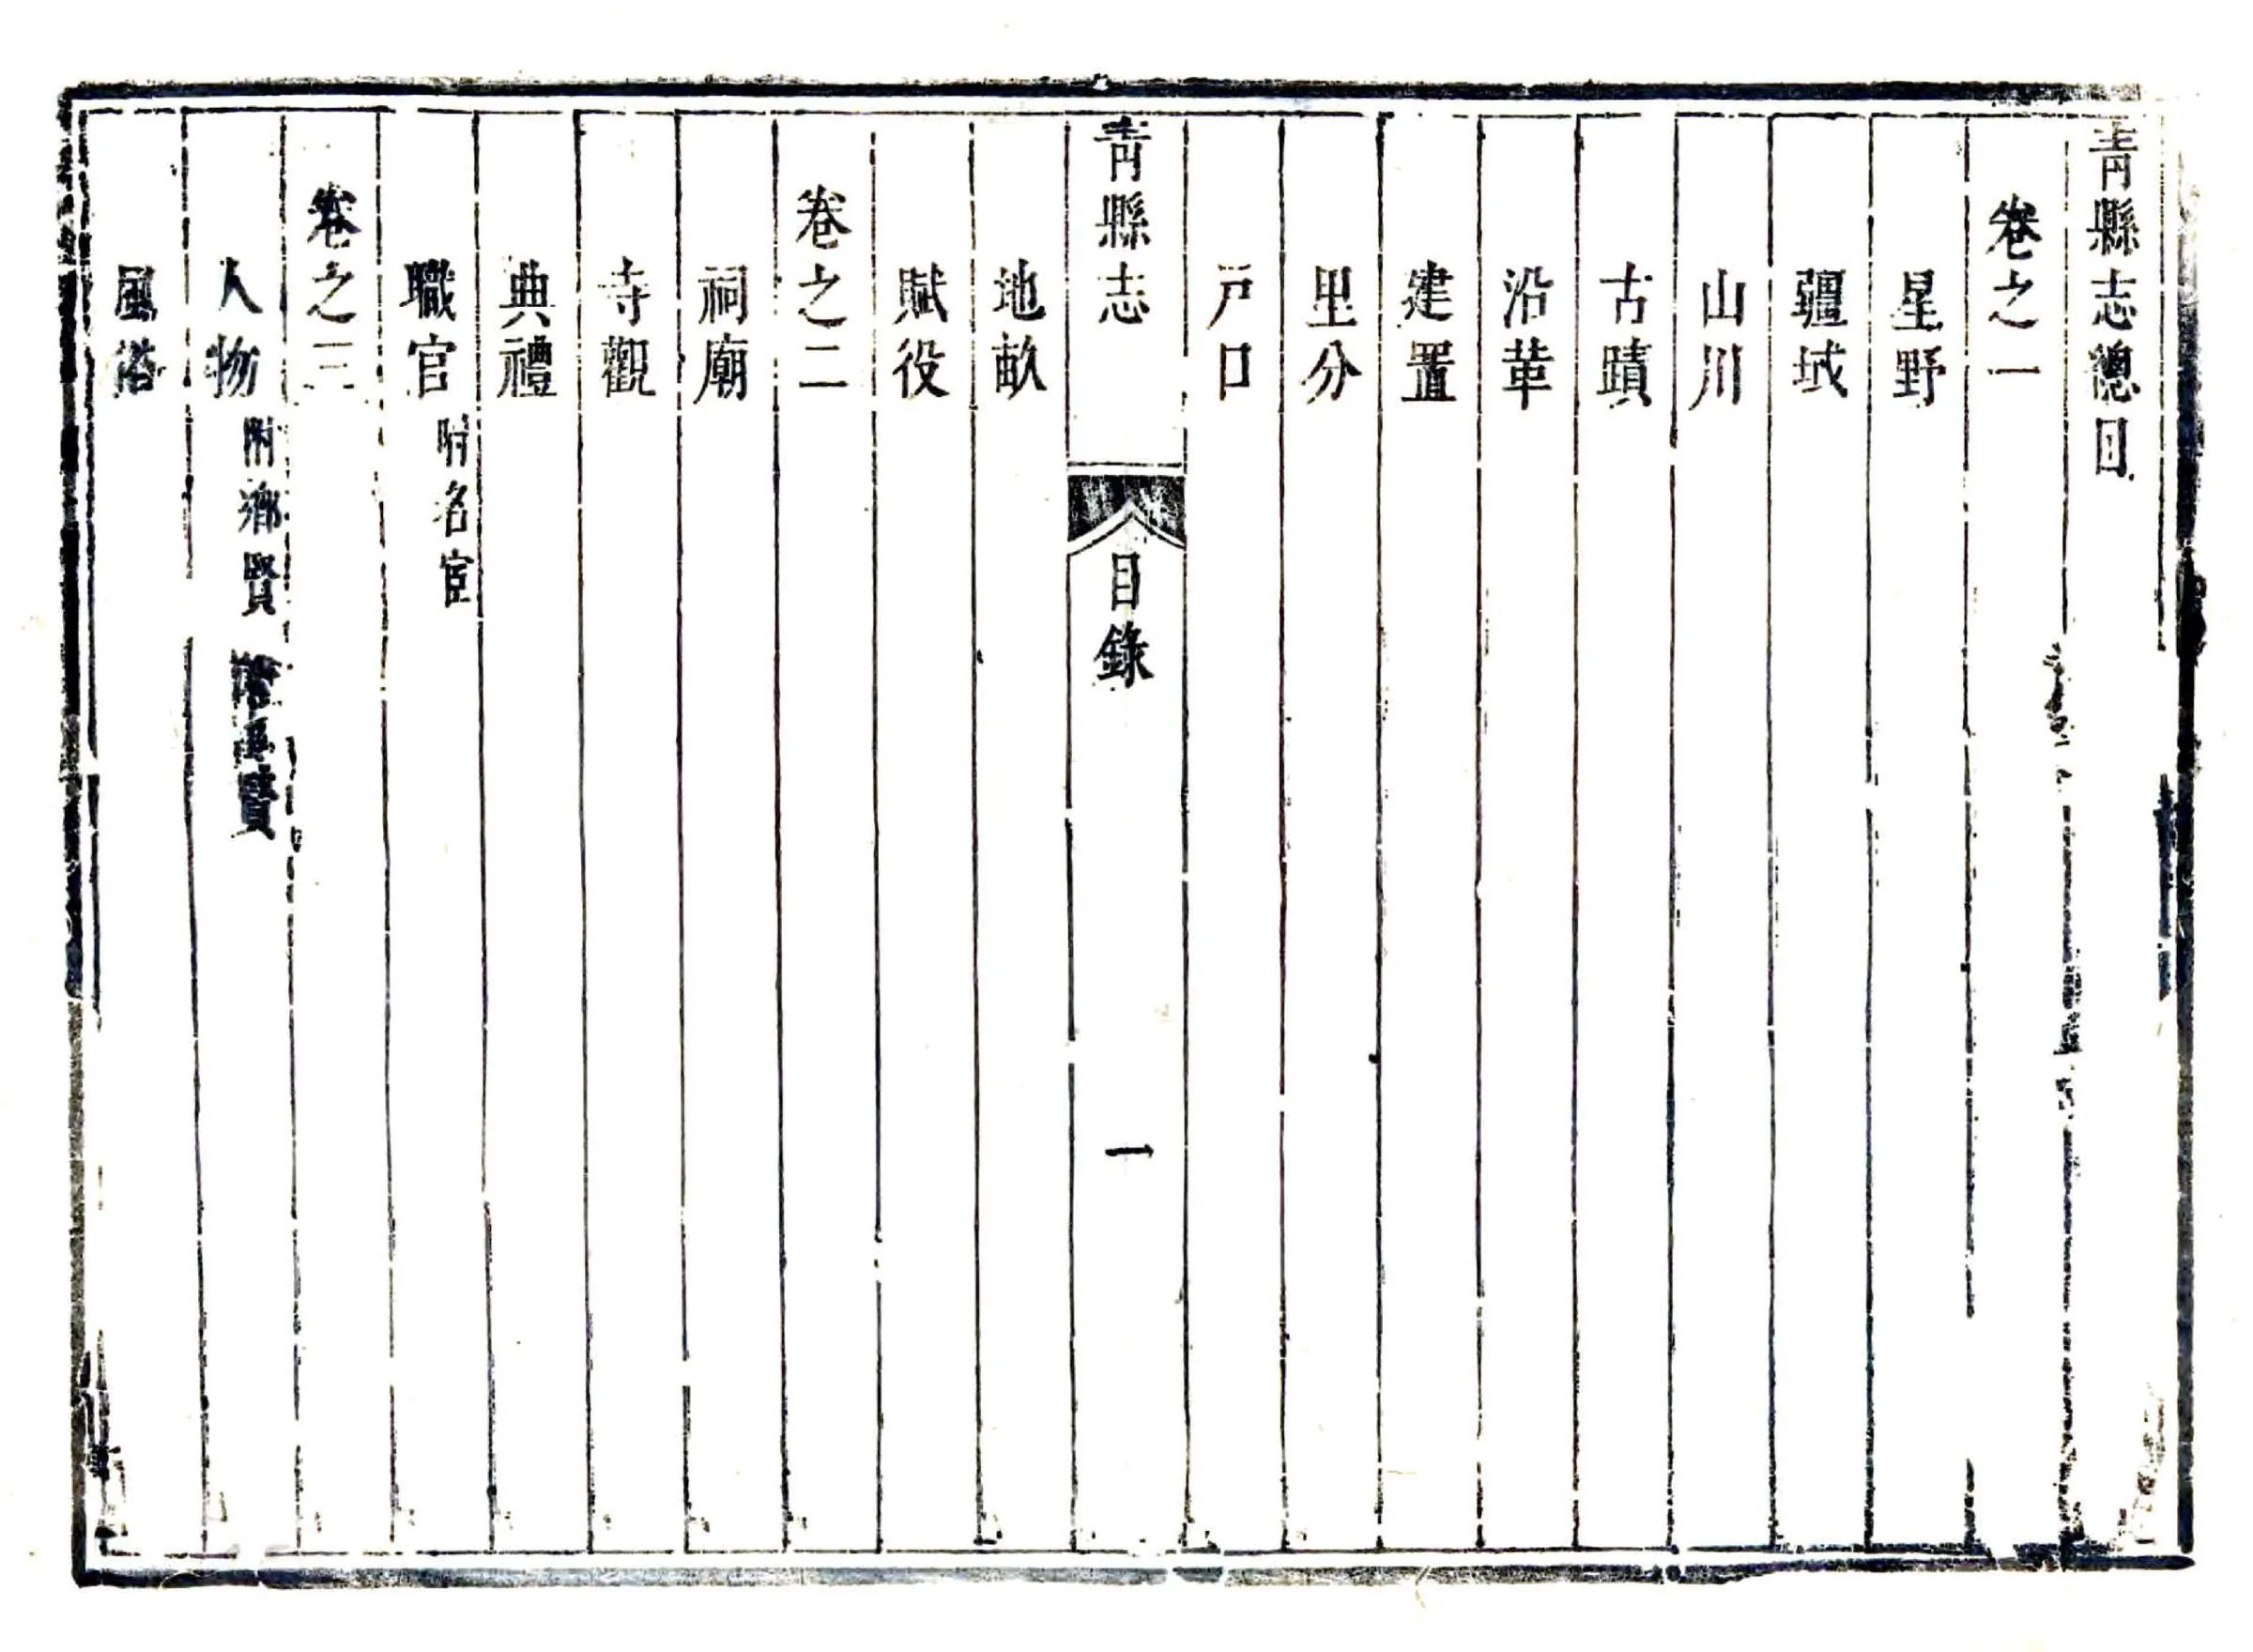 青縣志總目
卷之一
星野
疆域
山川
古蹟
沿革
建置
里分
戸口
青縣志 目錄 一
地畝
賦役
卷之二
祠廟
寺觀
典禮
職官 附名宦
卷之三
人物 附鄉賢
風俗